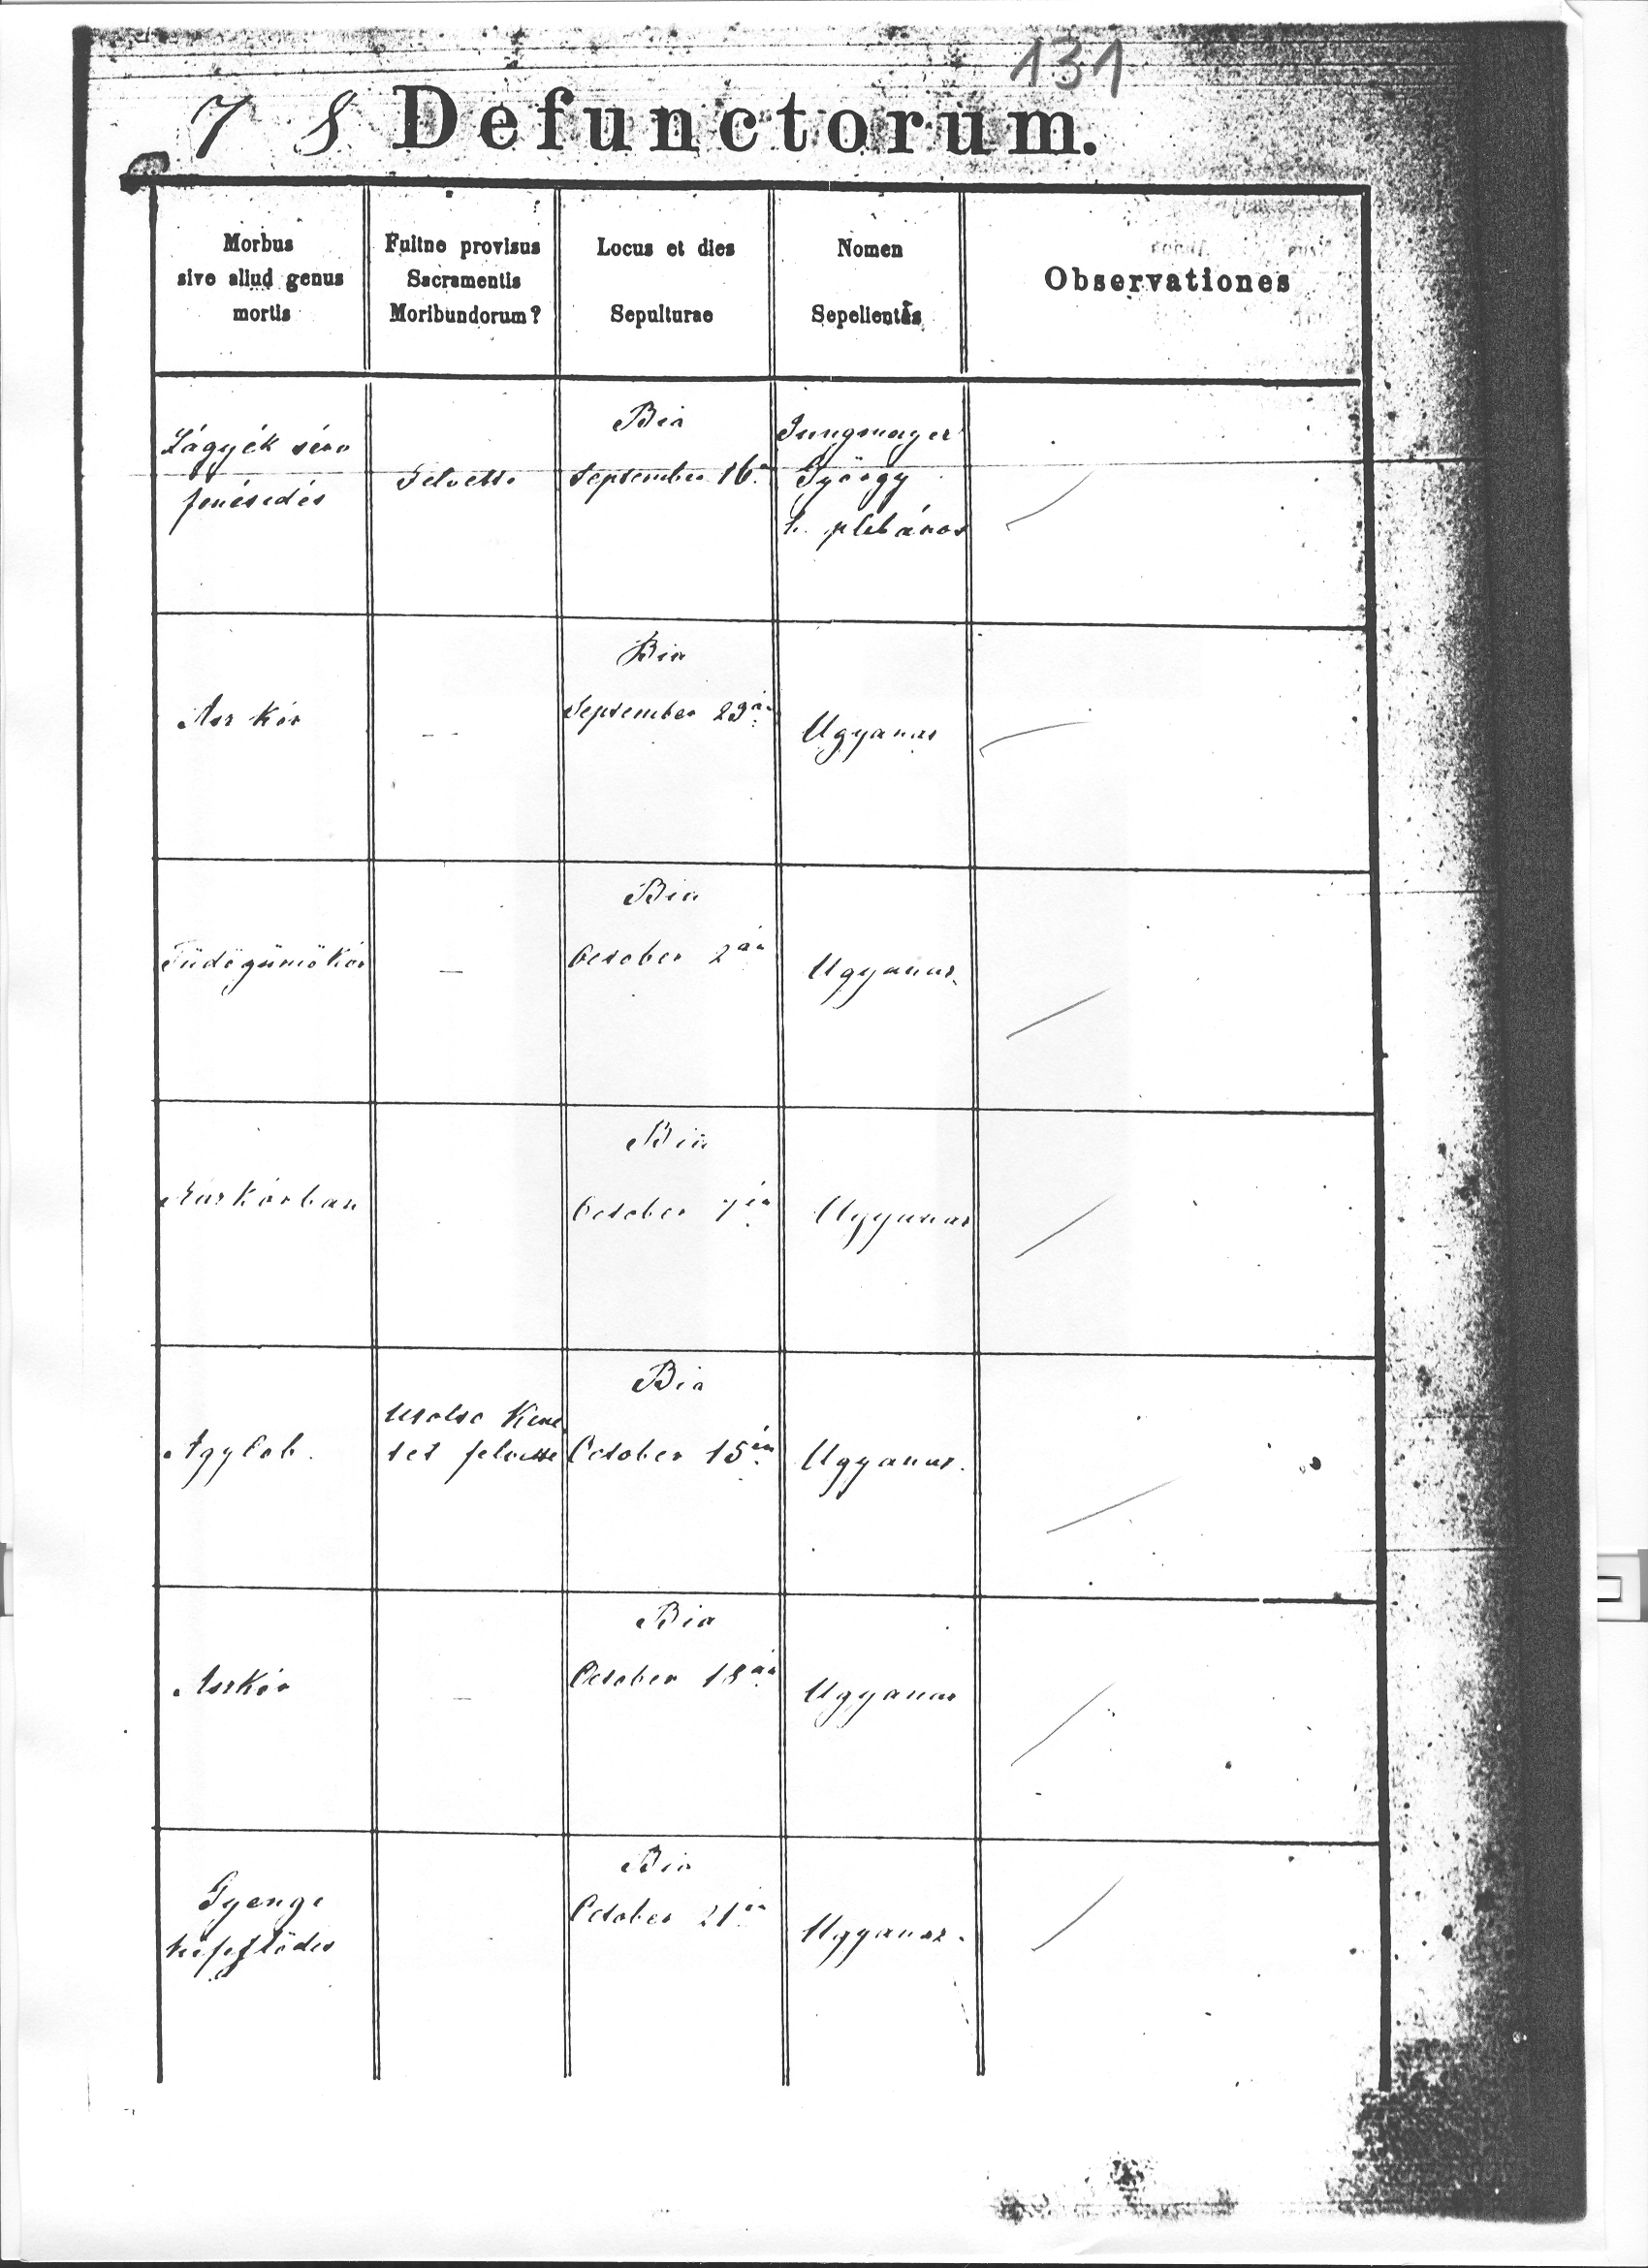 131
7 8 Defunctorum.
Morbus
sive aliud genus
mortis
Fuitne provisus
Sacramentis
Moribundorum?
Locus et dies
Sepulturae
Nomen
Sepelientis
Observationes
Lágyék sérv
fenésedés
Felvette
Bia
September 16
Jungmayer
György
h. plébános
Asz kór
Bia
September 29én
Ugyanaz
Tüdőgümőkór
—
Bia
October 2án
Ugyanaz.
Aszkórban
Bia
October 7én
Ugyanaz
Agylob.
Utolsó kene
tet felvette
Bia
October 15én
Ugyanaz.
Aszkór
—
Bia
October 18án
Ugyanaz
Gyenge
kifejlődés
Bia
October 21én
Ugyanaz.